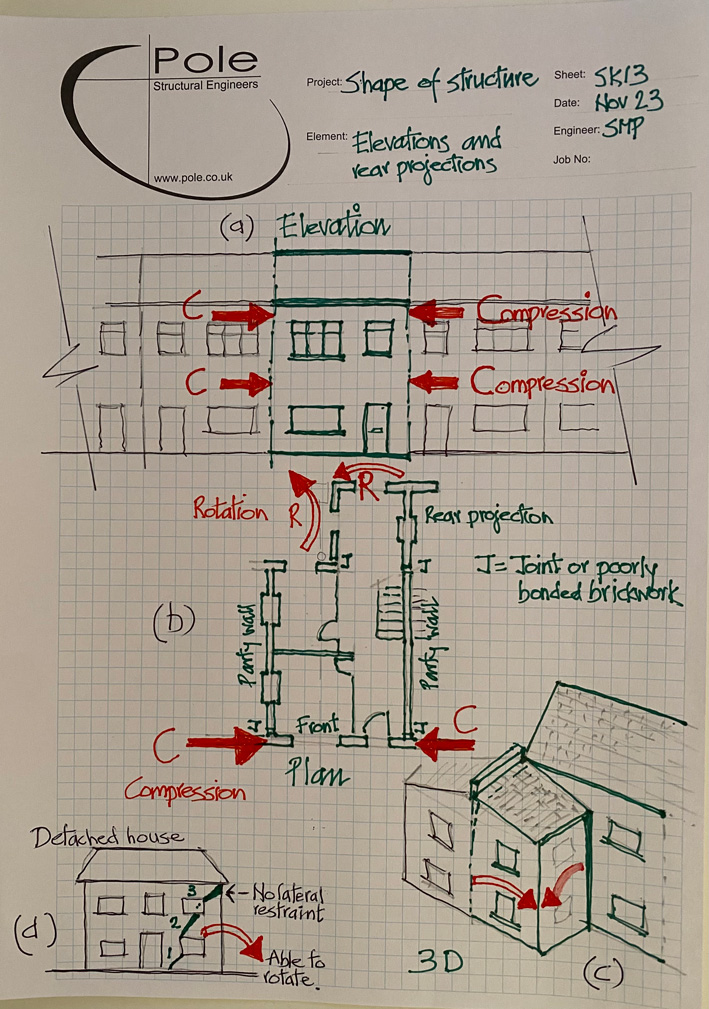 Pole
Structural Engineers
www.pole.co.uk
Project: Shape of structure
Element: Elevations and
rear projections
Sheet: SK13
Date: Nov 23
Engineer: SMP
Job No:
(a) Elevation
C Compression
C Compression
Rotation R R
Rear projection
J J
J = Joint or poorly
bonded brickwork
(b)
Party wall Party wall
J Front J
C C
Compression
Plan
Detached house
3
No lateral
restraint
2
1
(d)
Able to
rotate.
3D
(c)